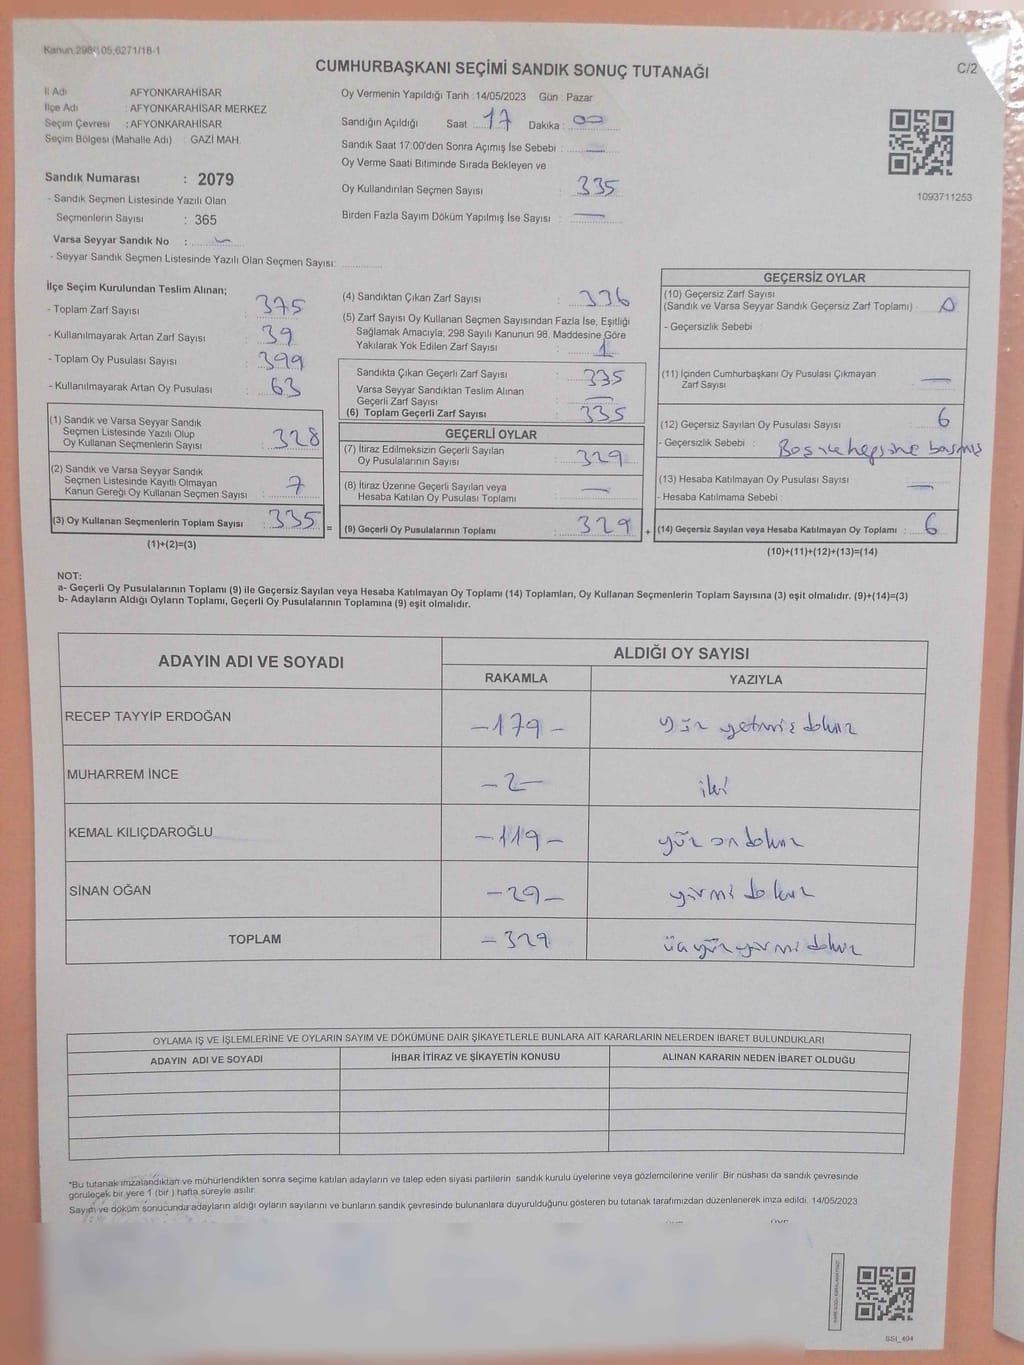 Kanun 298 05.6271/18-1
CUMHURBAŞKANI SEÇİMİ SANDIK SONUÇ TUTANAĞI
C/2
İl Adı AFYONKARAHİSAR
İlçe Adı : AFYONKARAHİSAR MERKEZ
Seçim Çevresi : AFYONKARAHİSAR
Seçim Bölgesi (Mahalle Adı) : GAZİ MAH.
Oy Vermenin Yapıldığı Tarih :14/05/2023 Gün : Pazar
Sandığın Açıldığı Saat : 17 Dakika : 00
Sandık Saat 17:00'den Sonra Açımış İse Sebebi : —
Oy Verme Saati Bitiminde Sırada Bekleyen ve
Oy Kullandırılan Seçmen Sayısı : 335
Birden Fazla Sayım Döküm Yapılmış İse Sayısı : —
1093711253
Sandık Numarası : 2079
- Sandık Seçmen Listesinde Yazılı Olan
Seçmenlerin Sayısı : 365
Varsa Seyyar Sandık No :
- Seyyar Sandık Seçmen Listesinde Yazılı Olan Seçmen Sayısı:
İlçe Seçim Kurulundan Teslim Alınan;
- Toplam Zarf Sayısı : 375
- Kullanılmayarak Artan Zarf Sayısı : 39
- Toplam Oy Pusulası Sayısı : 399
- Kullanılmayarak Artan Oy Pusulası : 63
(1) Sandık ve Varsa Seyyar Sandık
Seçmen Listesinde Yazılı Olup
Oy Kullanan Seçmenlerin Sayısı : 328
(2) Sandık ve Varsa Seyyar Sandık
Seçmen Listesinde Kayıtlı Olmayan
Kanun Gereği Oy Kullanan Seçmen Sayısı : 7
(3) Oy Kullanan Seçmenlerin Toplam Sayısı : 335
(1)+(2)=(3)
(4) Sandıktan Çıkan Zarf Sayısı : 336
(5) Zarf Sayısı Oy Kullanan Seçmen Sayısından Fazla İse, Eşitliği
Sağlamak Amacıyla; 298 Sayılı Kanunun 98. Maddesine Göre
Yakılarak Yok Edilen Zarf Sayısı : 1
Sandıkta Çıkan Geçerli Zarf Sayısı : 335
Varsa Seyyar Sandıktan Teslim Alınan
Geçerli Zarf Sayısı : —
(6) Toplam Geçerli Zarf Sayısı : 335
GEÇERLİ OYLAR
(7) İtiraz Edilmeksizin Geçerli Sayılan
Oy Pusulalarının Sayısı : 329
(8) İtiraz Üzerine Geçerli Sayılan veya
Hesaba Katılan Oy Pusulası Toplamı : —
= (9) Geçerli Oy Pusulalarının Toplamı : 329
GEÇERSİZ OYLAR
(10) Geçersiz Zarf Sayısı
(Sandık ve Varsa Seyyar Sandık Geçersiz Zarf Toplamı) : 0
- Geçersizlik Sebebi :
(11) İçinden Cumhurbaşkanı Oy Pusulası Çıkmayan
Zarf Sayısı : —
(12) Geçersiz Sayılan Oy Pusulası Sayısı : 6
- Geçersizlik Sebebi : Boş ve hepsine basmış
(13) Hesaba Katılmayan Oy Pusulası Sayısı : —
- Hesaba Katılmama Sebebi :
+ (14) Geçersiz Sayılan veya Hesaba Katılmayan Oy Toplamı : 6
(10)+(11)+(12)+(13)=(14)
NOT:
a- Geçerli Oy Pusulalarının Toplamı (9) ile Geçersiz Sayılan veya Hesaba Katılmayan Oy Toplamı (14) Toplamları, Oy Kullanan Seçmenlerin Toplam Sayısına (3) eşit olmalıdır. (9)+(14)=(3)
b- Adayların Aldığı Oyların Toplamı, Geçerli Oy Pusulalarının Toplamına (9) eşit olmalıdır.
ADAYIN ADI VE SOYADI ALDIĞI OY SAYISI
RAKAMLA YAZIYLA
RECEP TAYYİP ERDOĞAN -179- yüz yetmiş dokuz
MUHARREM İNCE -2- iki
KEMAL KILIÇDAROĞLU -119- yüz on dokuz
SİNAN OĞAN -29- yirmi dokuz
TOPLAM -329 üç yüz yirmi dokuz
OYLAMA İŞ VE İŞLEMLERİNE VE OYLARIN SAYIM VE DÖKÜMÜNE DAİR ŞİKAYETLERLE BUNLARA AİT KARARLARIN NELERDEN İBARET BULUNDUKLARI
ADAYIN ADI VE SOYADI İHBAR İTİRAZ VE ŞİKAYETİN KONUSU ALINAN KARARIN NEDEN İBARET OLDUĞU
*Bu tutanak imzalandıktan ve mühürlendikten sonra seçime katılan adayların ve talep eden siyasi partilerin sandık kurulu üyelerine veya gözlemcilerine verilir. Bir nüshası da sandık çevresinde
görülecek bir yere 1 (bir) hafta süreyle asılır.
Sayım ve döküm sonucunda adayların aldığı oyların sayılarını ve bunların sandık çevresinde bulunanlara duyurulduğunu gösteren bu tutanak tarafımızdan düzenlenerek imza edildi. 14/05/2023
SSİ_404